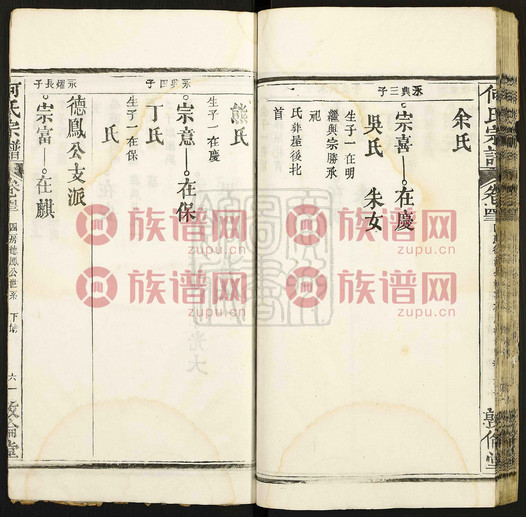 何氏宗譜
敦倫堂
余氏
永典三子
宗喜 在慶
吳氏 朱女
生子一在明
繼與宗勝承
祀
氏葬屋後北
首
熊氏
生子一在慶
永典四子
宗意 在保
丁氏
生子一在保
氏
德鳳公支派
永耀長子
宗富 在麒
何氏宗譜
四房德鳳公世系
六一
敦倫堂
族谱网
族谱网
族谱网
族谱网
族谱网
族谱网